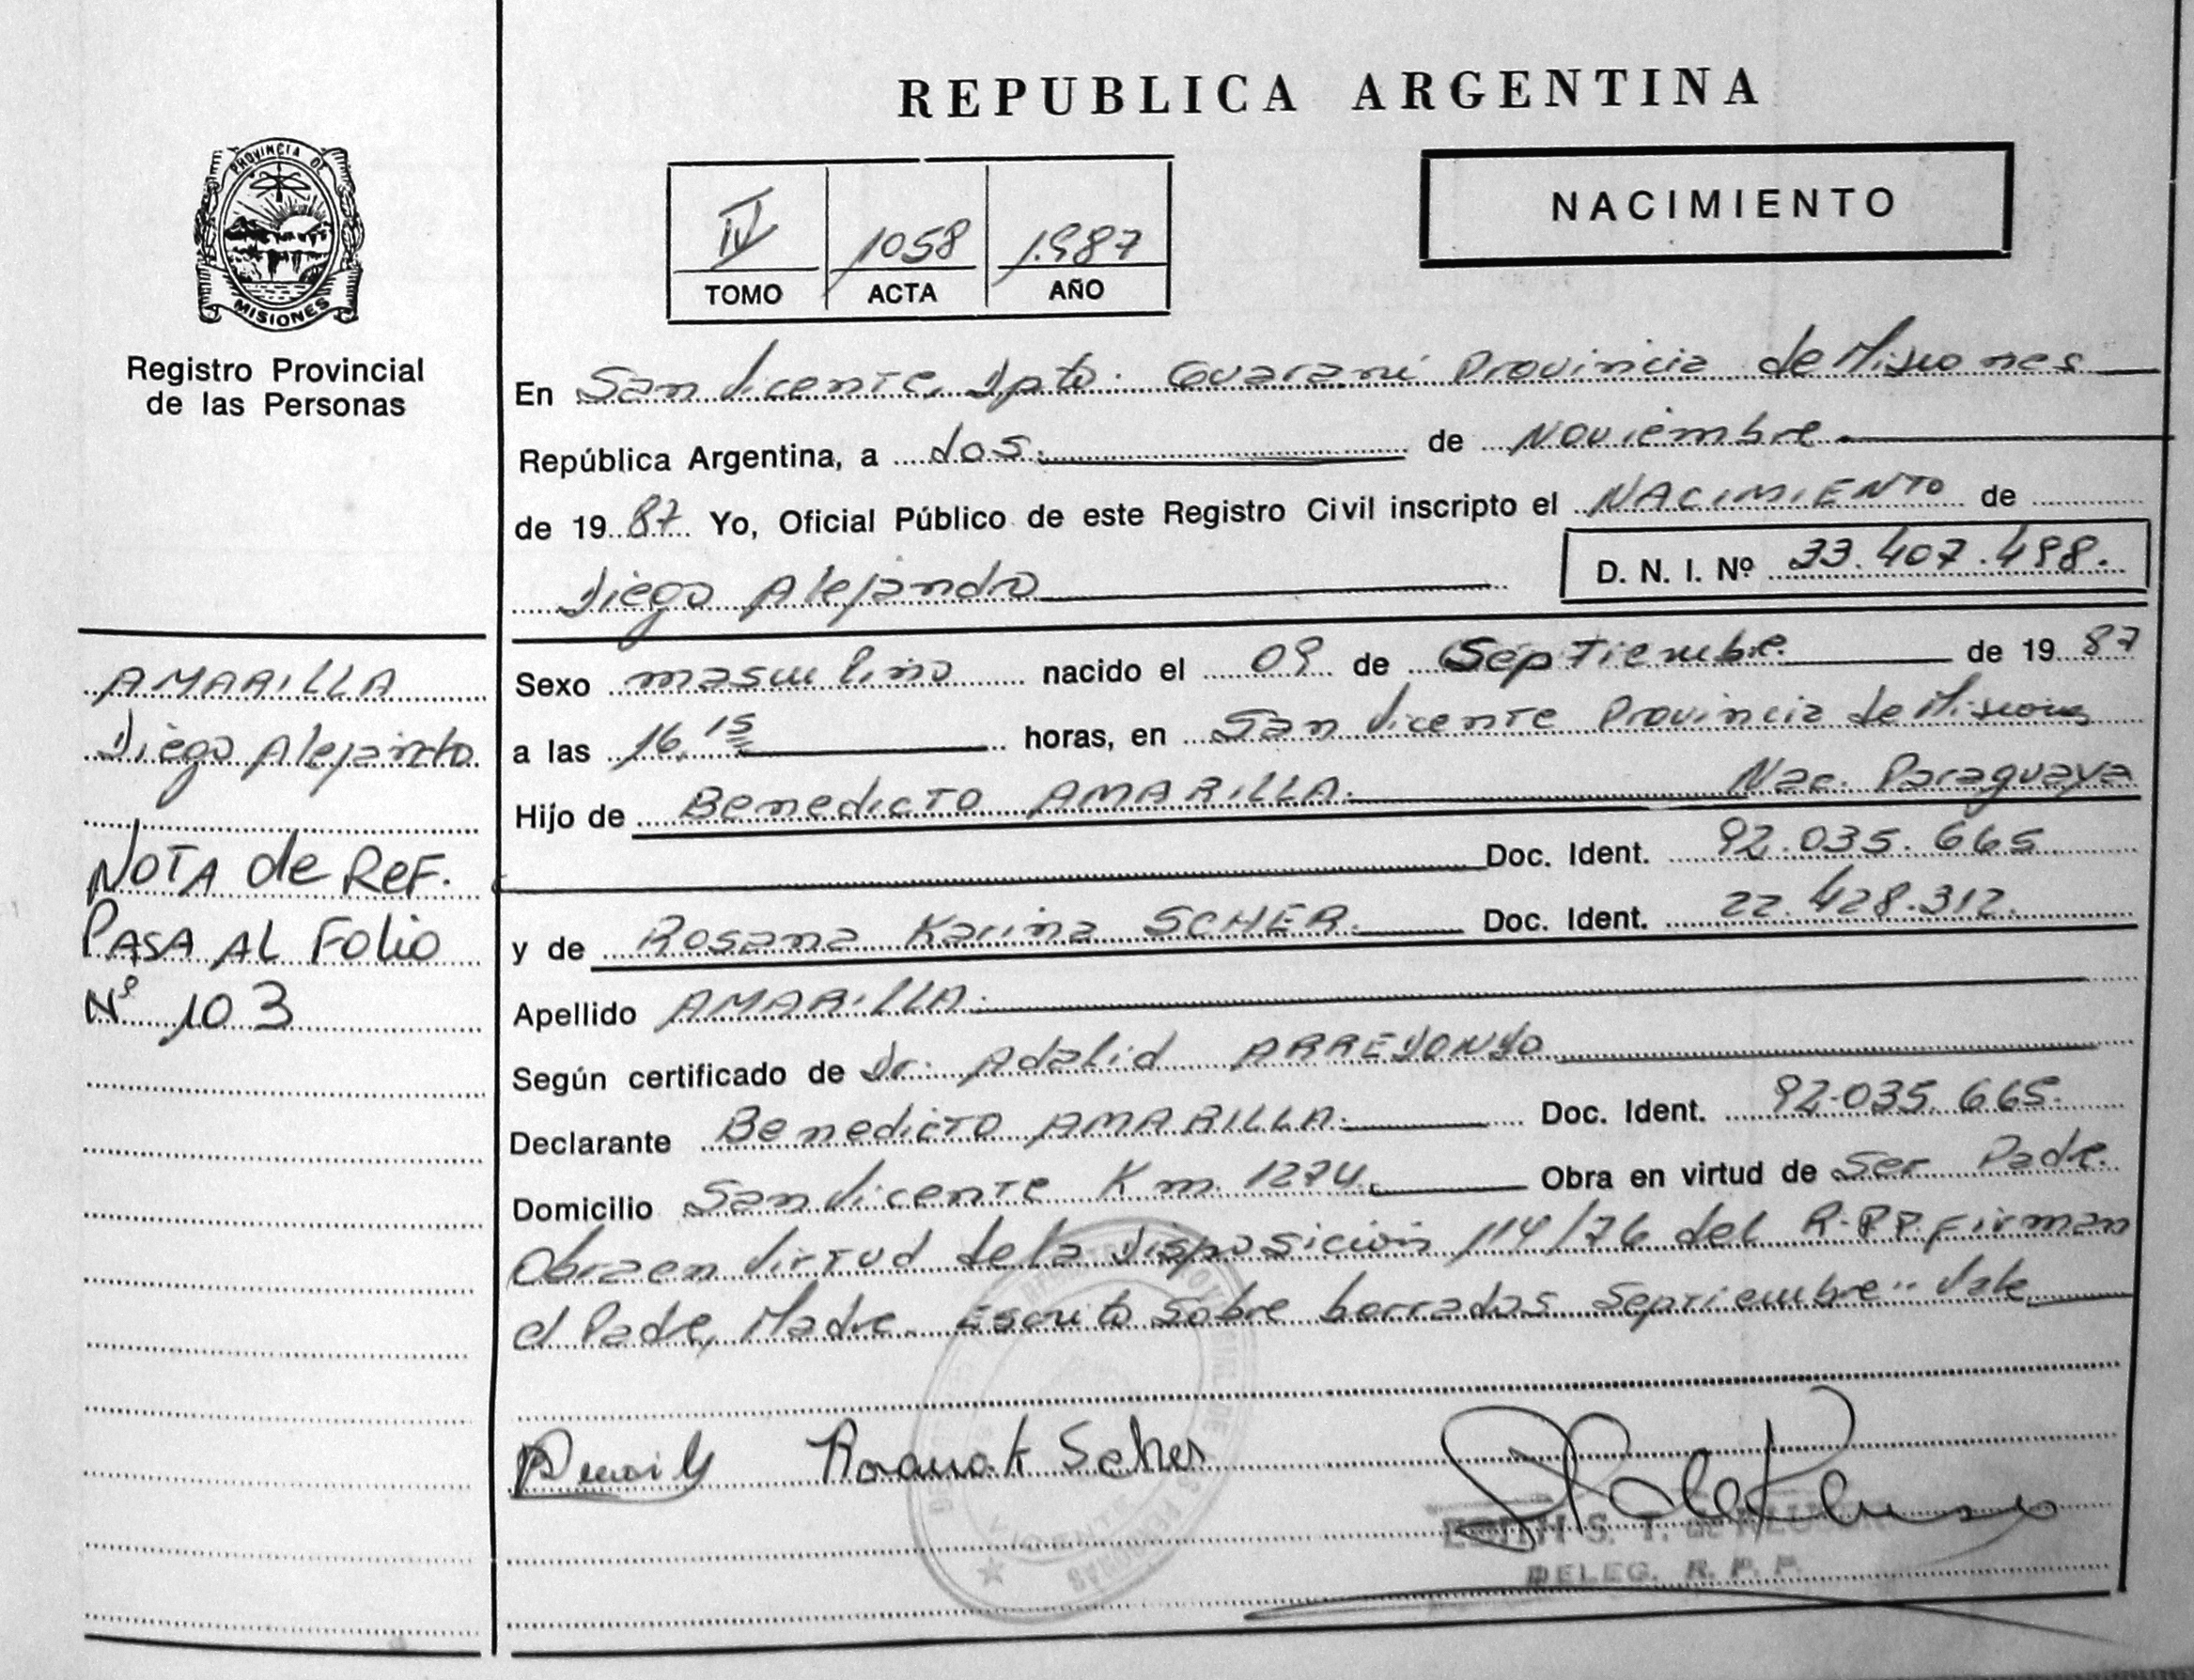 REPUBLICA ARGENTINA
PROVINCIA DE
MISIONES
Registro Provincial
de las Personas
IV 1058 1.987
TOMO ACTA AÑO
NACIMIENTO
En San Vicente, Dpto. Guaraní Provincia de Misiones
República Argentina, a dos. de Noviembre.
de 19 87 Yo, Oficial Público de este Registro Civil inscripto el NACIMIENTO de
Diego Alejandro
D. N. I. Nº 33.407.498.
AMARILLA
Diego Alejandro
NOTA de REF.
PASA AL FOLIO
Nº 103
Sexo masculino nacido el 09 de Septiembre. de 19 87
a las 16,15 horas, en San Vicente Provincia de Misiones
Hijo de Benedicto AMARILLA. Nac. Paraguaya
Doc. Ident. 92.035.665
y de Rosana Karina SCHER. Doc. Ident. 22.428.312.
Apellido AMARILLA.
Según certificado de Dr. Adalid ARREDONDO
Declarante Benedicto AMARILLA. Doc. Ident. 92.035.665.
Domicilio San Vicente Km. 1274. Obra en virtud de Ser Padre.
Obra en virtud de la Disposición 114/76 del R.P.P. Firman
el Padre, Madre. Escrito sobre borrados Septiembre.. Vale
Scher
EDITH S. T. de
DELEG. R. P. P.